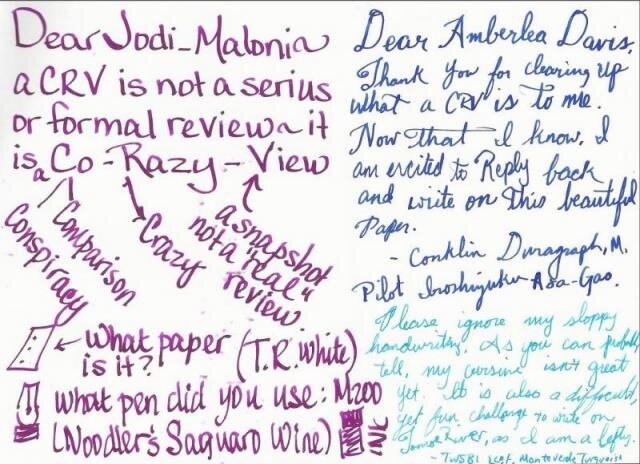 Dear Jodi-Malonia
a CRV is not a serius
or formal review ~ it
is a Co - Razy - View
Conspiracy
Comparison
Crazy
a snapshot
not a "real"
review
← What paper (T.R. White)
is it?
what pen did you use: M200
(Noodler's Saguaro Wine) INK
Dear Amberlea Davis,
Thank you for clearing up
what a CRV is to me.
Now that I know, I
am excited to Reply back
and write on This beautiful
Paper.
- Conklin Duragraph, M.
Pilot Iroshizuku Asa-Gao.
Please ignore my sloppy
handwriting. As you can probably
tell, my cursive isn't great
yet. It is also a difficult,
yet fun challenge to write on
Tomoe River, as I am a lefty.
- TWSBI Monteverde Turquoise